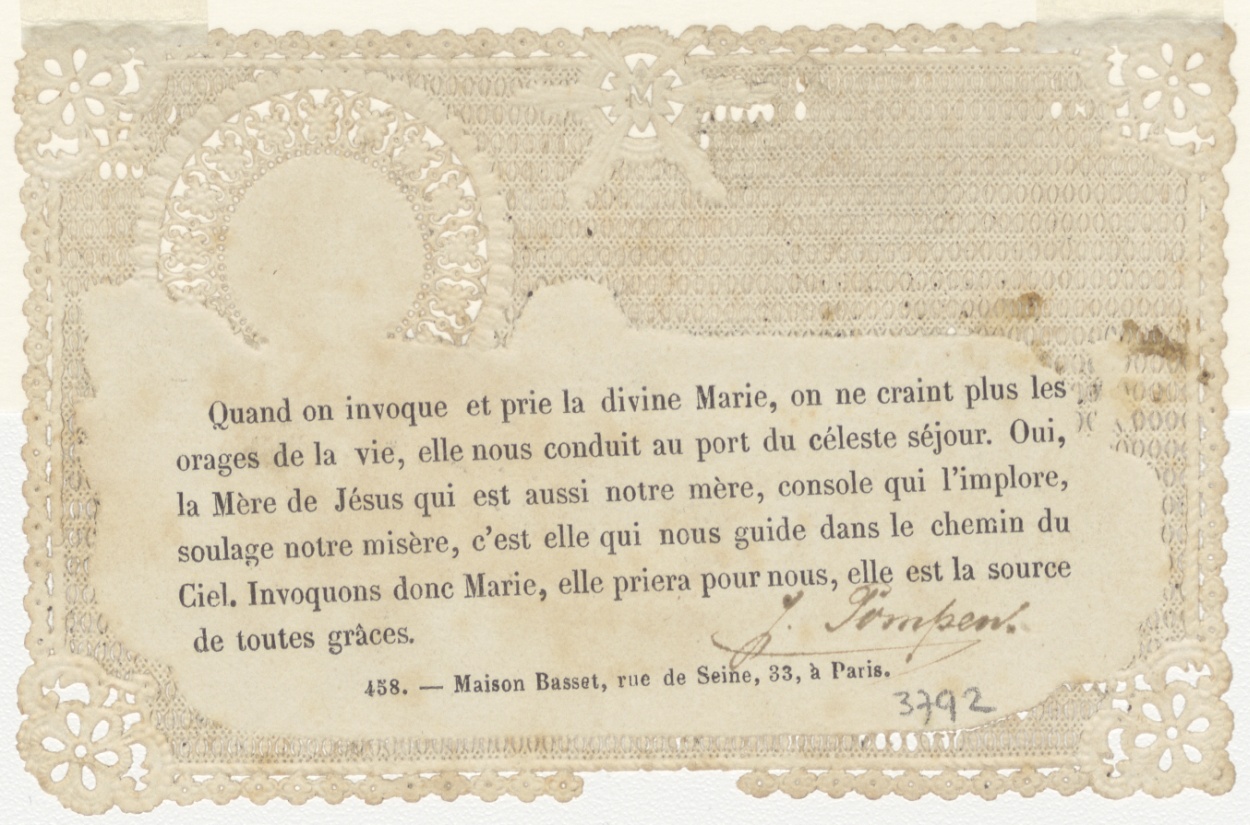 M
Quand on invoque et prie la divine Marie, on ne craint plus les
orages de la vie, elle nous conduit au port du céleste séjour. Oui,
la Mère de Jésus qui est aussi notre mère, console qui l'implore,
soulage notre misère, c'est elle qui nous guide dans le chemin du
Ciel. Invoquons donc Marie, elle priera pour nous, elle est la source
de toutes grâces.
J. Pompen.
458. — Maison Basset, rue de Seine, 33, à Paris.
3792